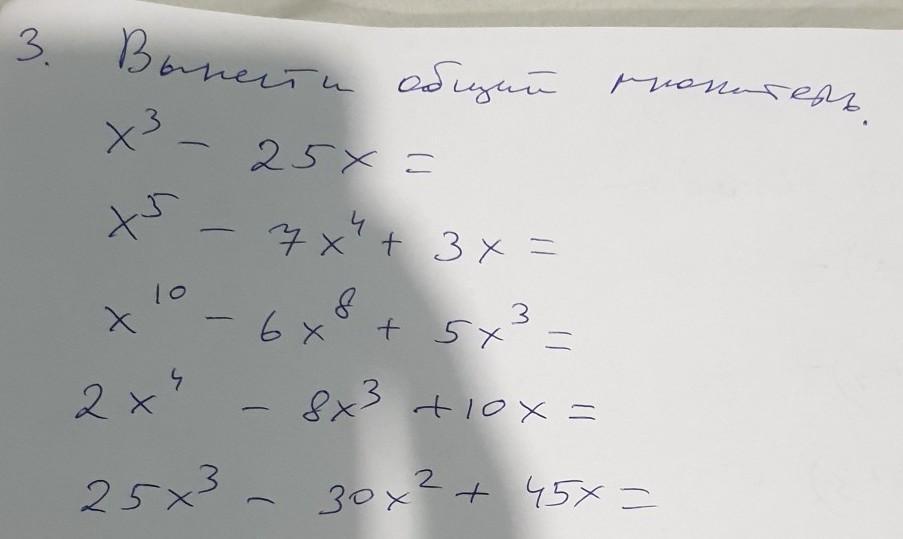 3. Вынести общий множитель.
x³ - 25x =
x⁵ - 7x⁴ + 3x =
x¹⁰ - 6x⁸ + 5x³ =
2x⁴ - 8x³ + 10x =
25x³ - 30x² + 45x =